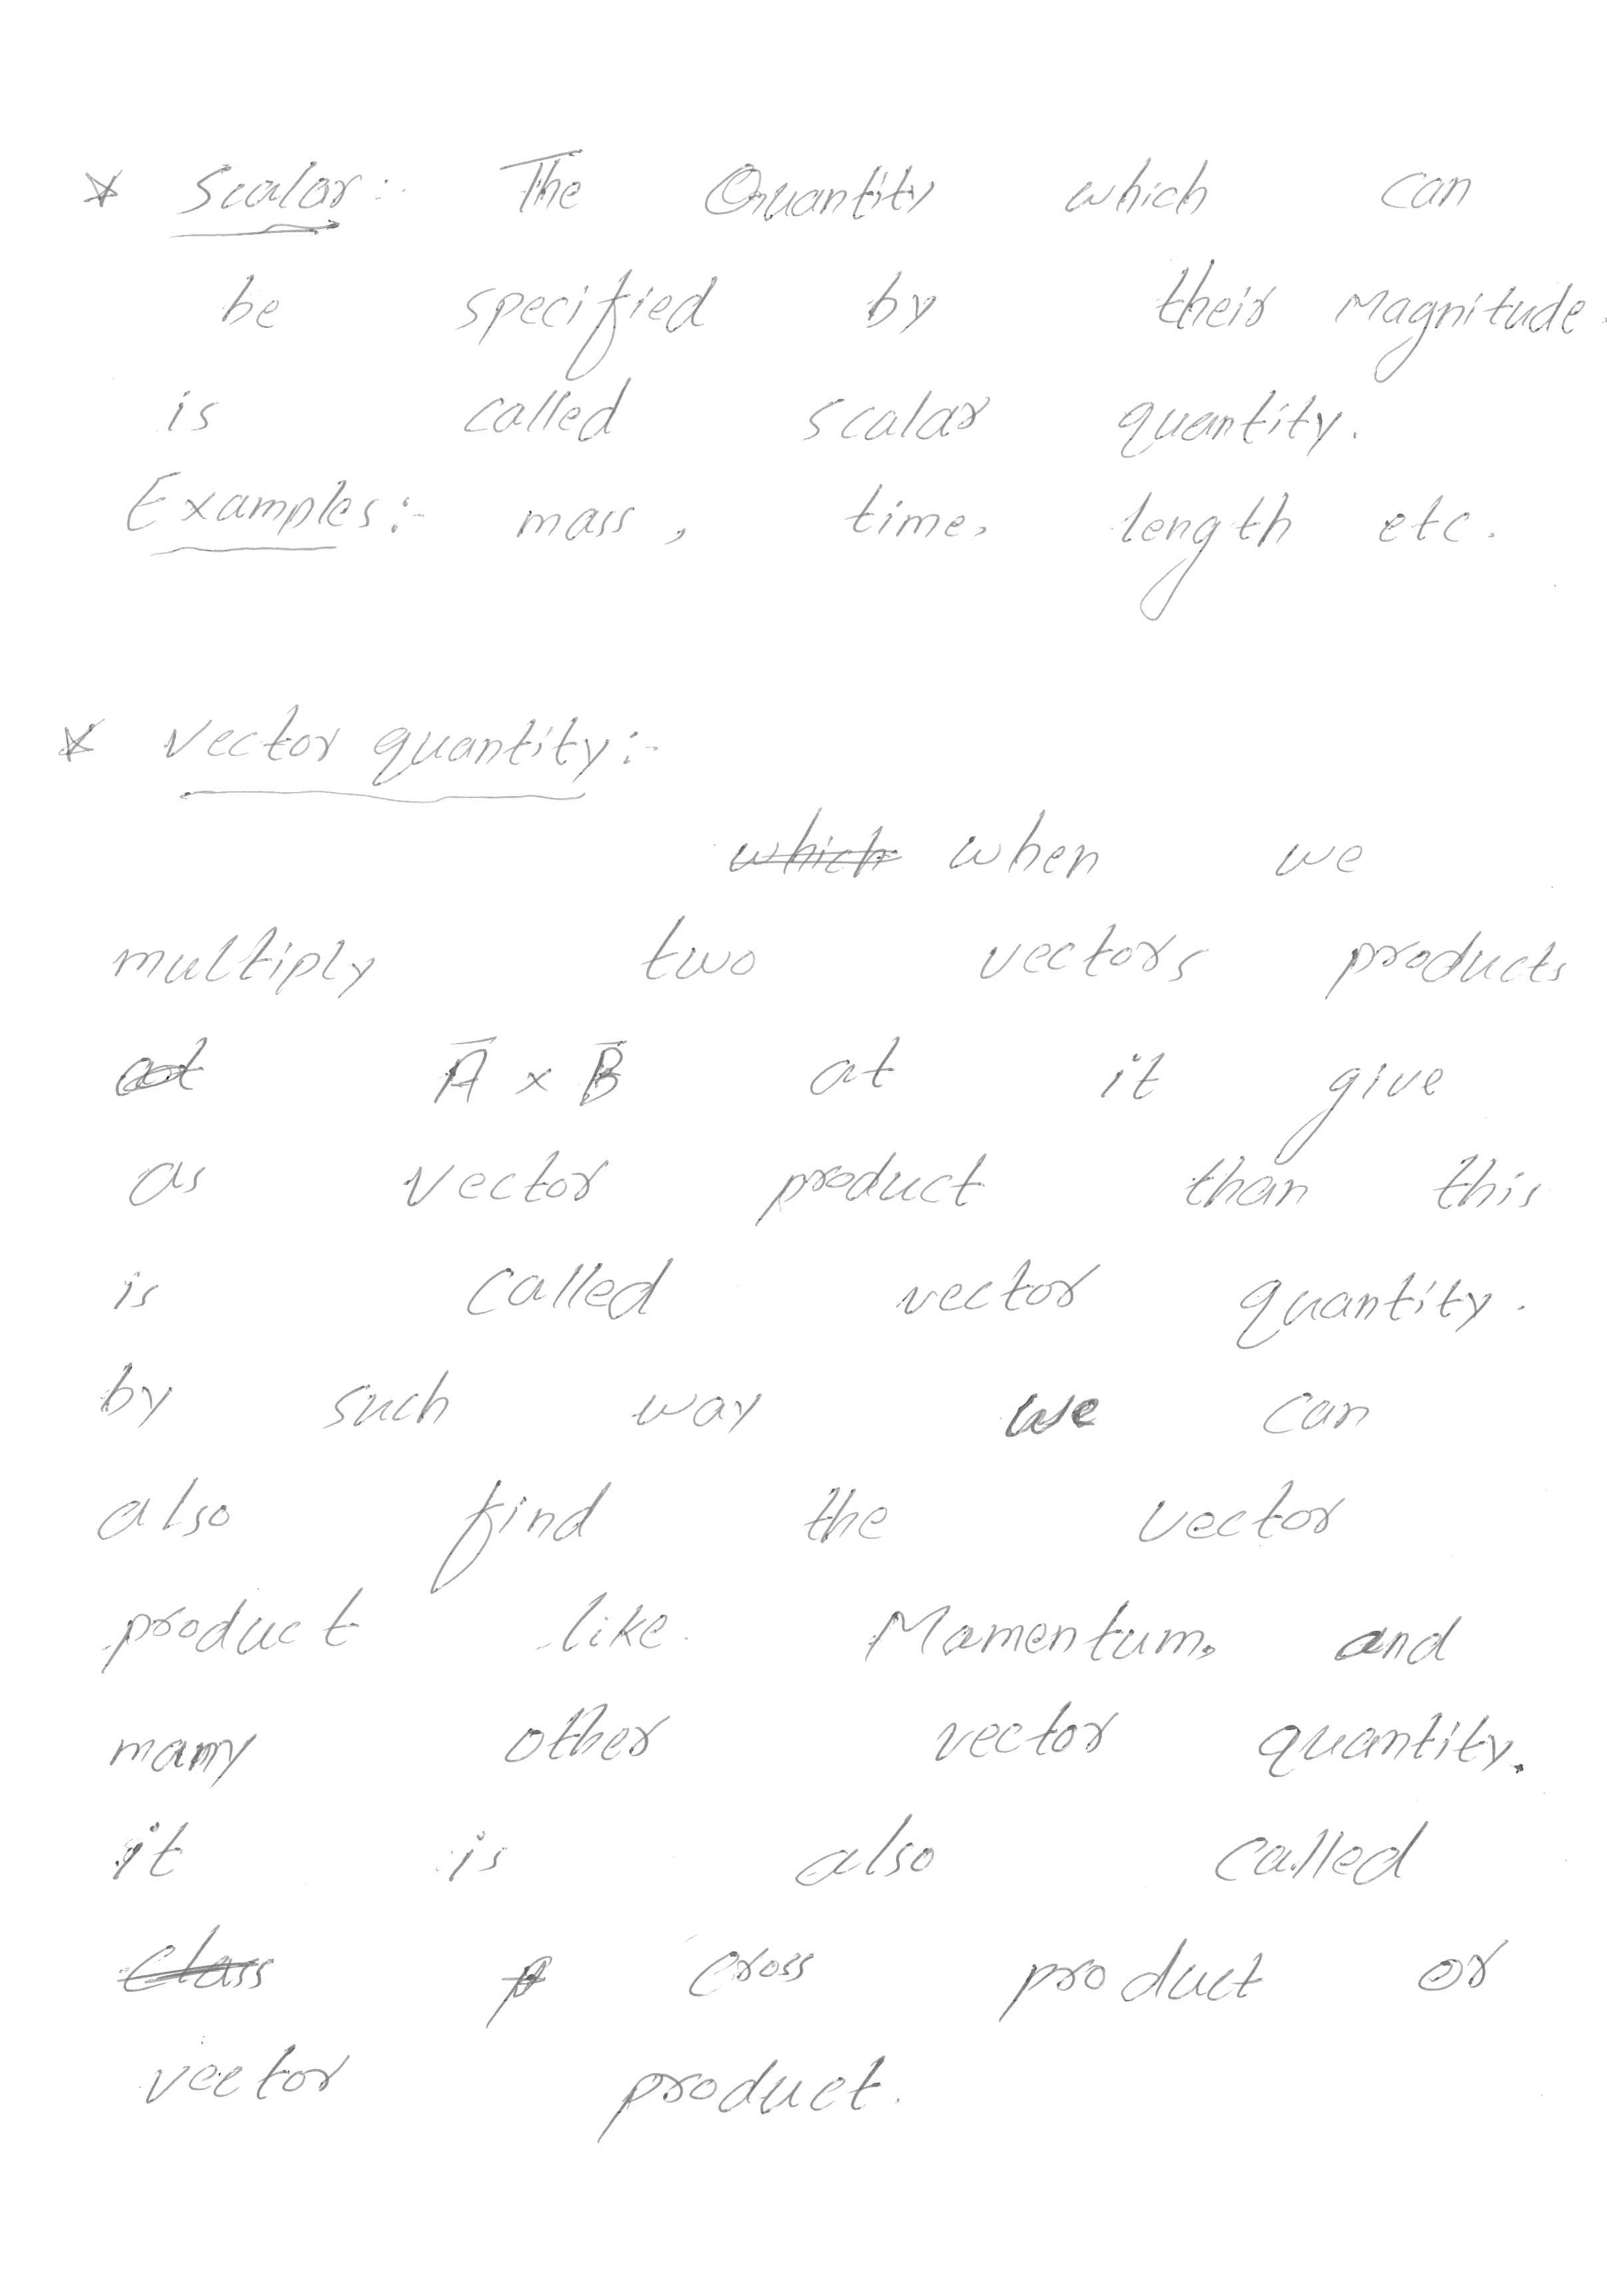 * Scalar:- The Quantity which can
be specified by their Magnitude.
is called scalar quantity.
Examples:- mass, time, length etc.
* Vector quantity:-
~~which~~ when we
multiply two vectors products
~~at~~ A̅ × B̅ at it give
as vector product than this
is called vector quantity.
by such way we can
also find the vector
product like Momentum, and
many other vector quantity.
it is also called
~~class~~ ~~p~~ cross product or
vector product.